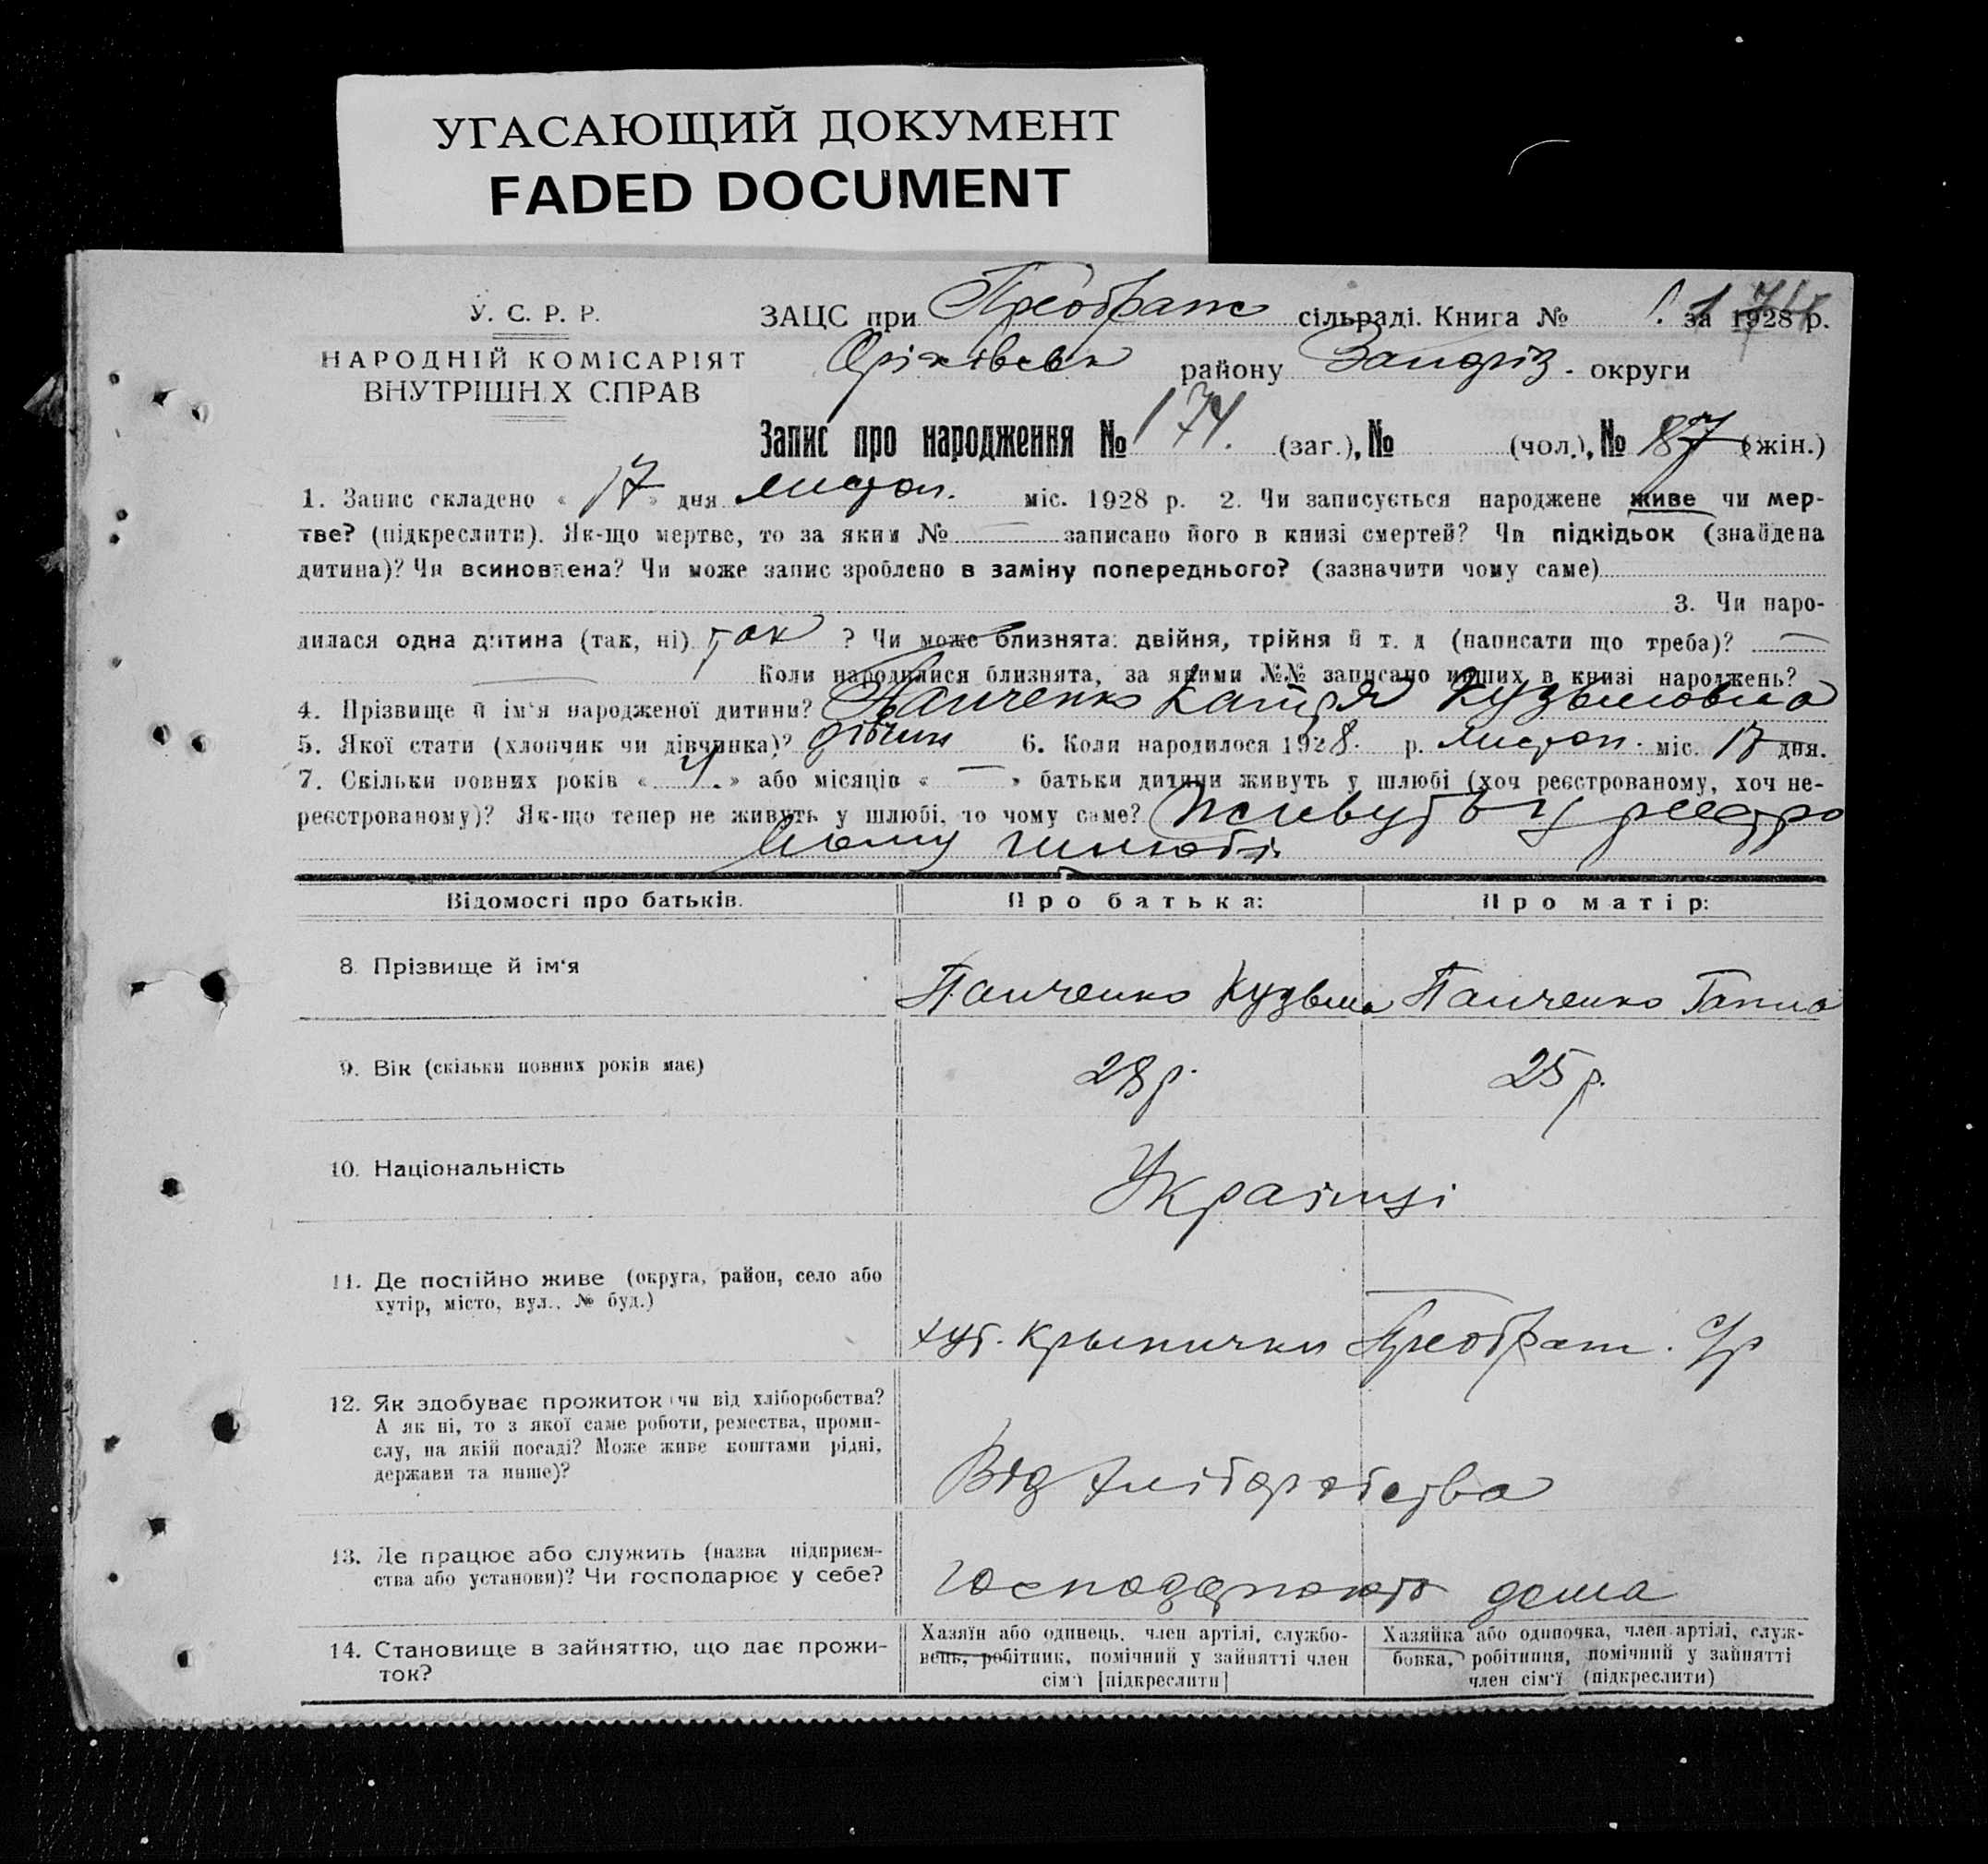 УГАСАЮЩИЙ ДОКУМЕНТ
FADED DOCUMENT
У. С. Р. Р.
НАРОДНІЙ КОМІСАРІЯТ
ВНУТРІШНІХ СПРАВ
ЗАЦС при Преображ сільраді. Книга № за 1928 р.
Оріхівськ району Запоріз. округи
Запис про народження № 174. (заг.), № (чол.), № 87 (жін.)
1. Запис складено « 17 » дня листоп. міс. 1928 р. 2. Чи записується народжене живе чи мер-
тве? (підкреслити). Як-що мертве, то за яким № записано його в книзі смертей? Чи підкідьок (знайдена
дитина)? Чи всиновлена? Чи може запис зроблено в заміну попереднього? (зазначити чому саме)
3. Чи наро-
дилася одна дитина (так, ні) так ? Чи може близнята: двійня, трійня й т. д (написати що треба)?
Коли народилися близнята, за якими №№ записано инших в книзі народжень?
4. Прізвище й ім'я народженої дитини? Панченко Катря Кузьмовна
5. Якої стати (хлопчик чи дівчинка)? дівчин 6. Коли народилося 1928. р. листоп. міс. 17 дня.
7. Скільки повних років « 4. » або місяців « — » батьки дитини живуть у шлюбі (хоч реєстрованому, хоч не-
реєстрованому)? Як-що тепер не живуть у шлюбі, то чому саме? Живуть у реєстро
ваному шлюбі
Відомості про батьків. Про батька: Про матір:
8. Прізвище й ім'я Панченко Кузьма Панченко Ганна
9. Вік (скільки повних років має) 28 р. 25 р.
10. Національність Українці
11. Де постійно живе (округа, район, село або
хутір, місто, вул., № буд.)
хут. Крынички Преображ. с/р
12. Як здобуває прожиток чи від хліборобства?
А як ні, то з якої саме роботи, ремества, проми-
слу, на якій посаді? Може живе коштами рідні,
держави та инше)?
Від хліборобства
13. Де працює або служить (назва підприєм-
ства або установи)? Чи господарює у себе?
Господарюють дома
14. Становище в зайняттю, що дає прожи-
ток?
Хазяїн або одинець, член артілі, службо-
вець, робітник, помічний у зайнятті член
сім'ї [підкреслити]
Хазяйка або одиночка, член артілі, служ-
бовка, робітниця, помічний у зайнятті
член сім'ї (підкреслити)